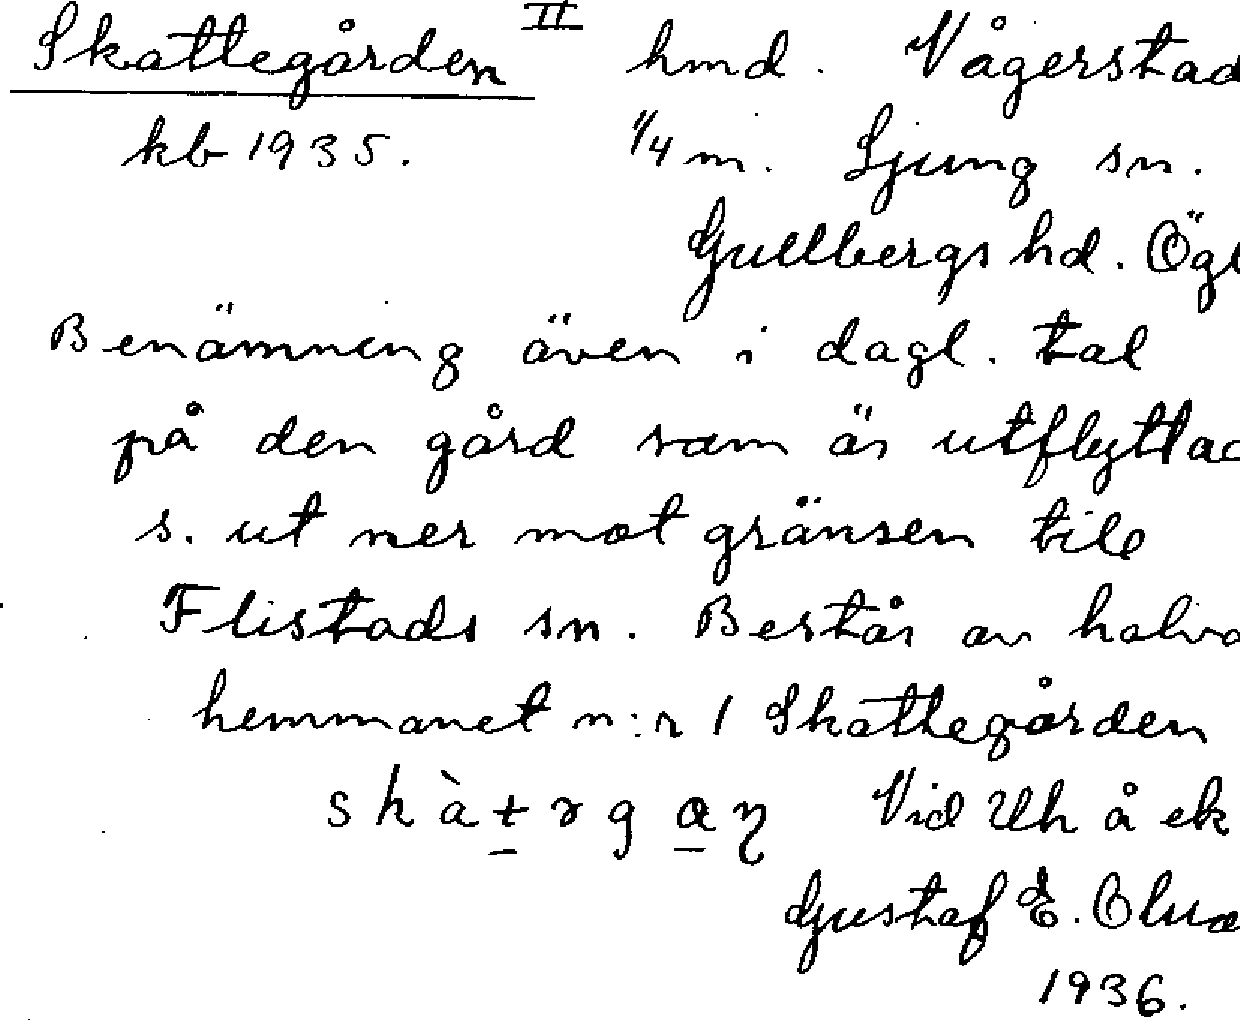 Skattegården II hmd. Vågerstad
kb 1935. 1/4 m. Ljung sn.
Gullbergs hd. Ögl
Benämning även i dagl. tal
på den gård som är utflyttad
s. ut ner mot gränsen till
Flistads sn. Består av halva
hemmanet n:r 1 Skattegården
Vid Uk å ek
Gustaf E. Olss
1936.